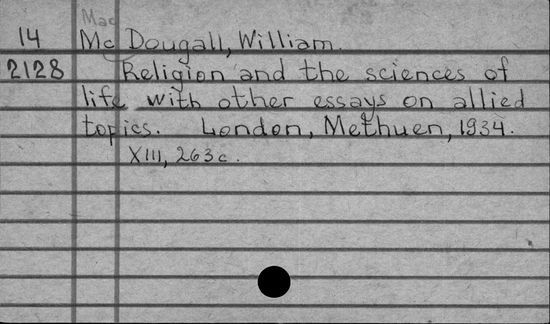 Mac
14 Mc Dougall, William.
2128 Religion and the sciences of
life with other essays on allied
topics. London, Methuen, 1934.
XIII, 263c.